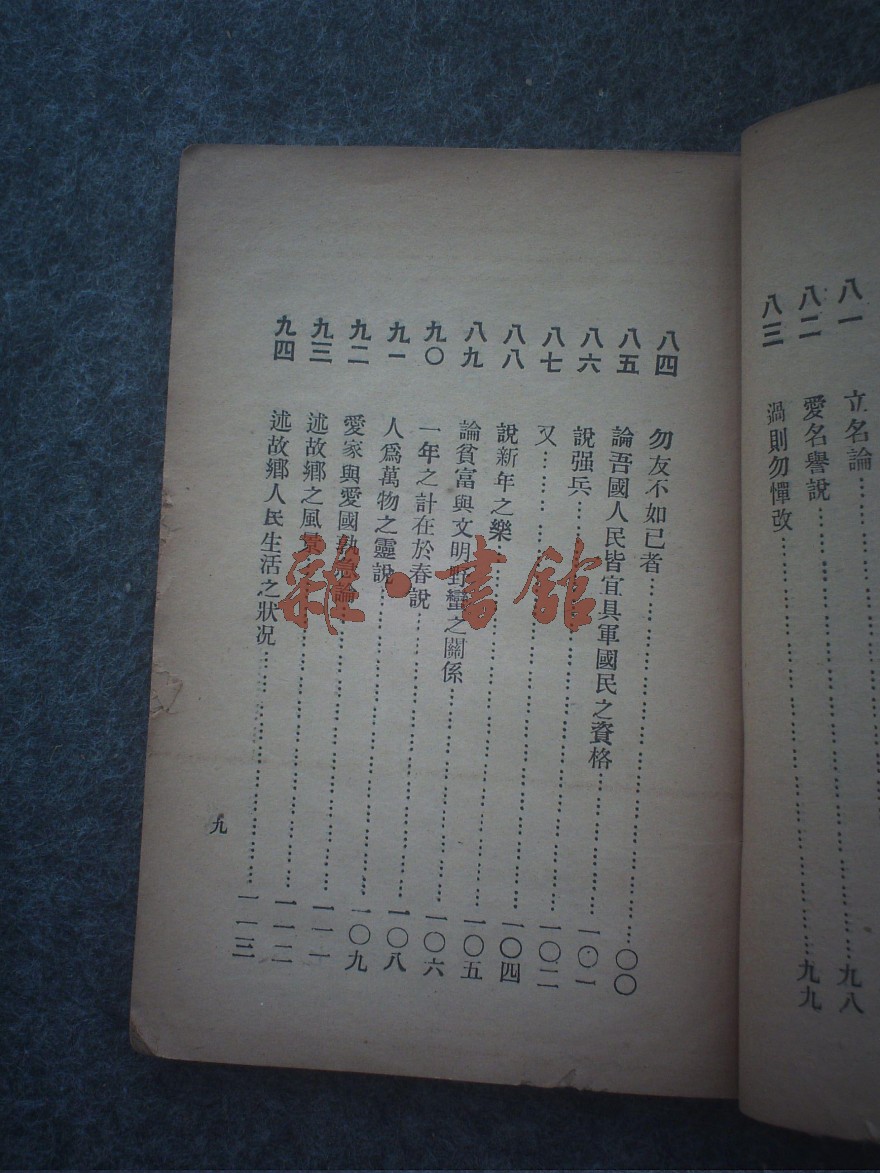 八一 立名論……九八
八二 愛名譽說……九九
八三 過則勿憚改……
八四 勿友不如已者……〇〇
八五 論吾國人民皆宜具軍國民之資格……一〇一
八六 說强兵……一〇二
八七 又……一〇四
八八 說新年之樂……一〇五
八九 論貧富與文明野蠻之關係……一〇六
九〇 一年之計在於春說……一〇八
九一 人爲萬物之靈說……一〇九
九二 愛家與愛國孰急論……一一一
九三 述故鄉之風景……一一二
九四 述故鄉人民生活之狀況……一一三
九
雜·書館